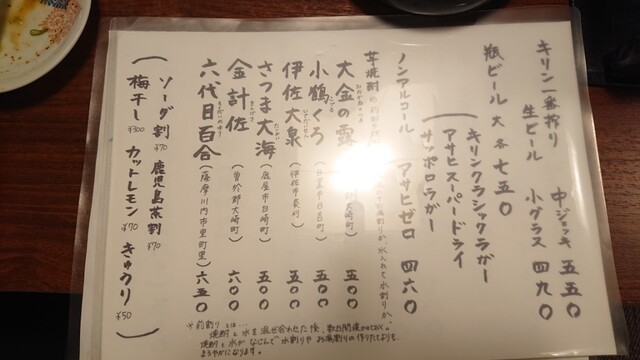 キリン一番搾り
生ビール 中ジョッキ 五五〇
小グラス 四九〇
瓶ビール 大 各 七五〇
キリンクラシックラガー
アサヒスーパードライ
サッポロラガー
ノンアルコール アサヒゼロ 四六〇
芋焼酎
大金の露 五〇〇
小鶴くろ 五〇〇
伊佐大泉 (伊佐市 五〇〇
さつま大海 (鹿屋市白崎町) 五〇〇
金計佐 (曽於郡大崎町) 六〇〇
六代目百合 (薩摩川内市里町里) 六五〇
ソーダ割 ¥70 鹿児島茶割 ¥70
(梅干し ¥300 カットレモン ¥70 きゅうり ¥50)
※前割りとは…
焼酎と水を混ぜ合わせた後、数日間
焼酎と水がなじんで水割りやお湯割りの作りたてよりも
まろやかになります。